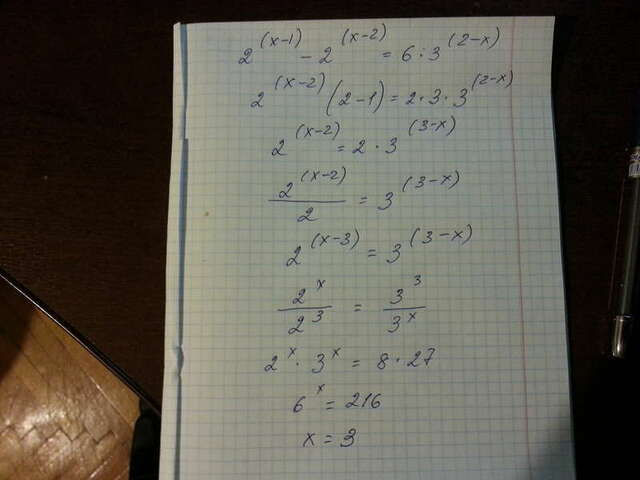 2^(x-1) - 2^(x-2) = 6 · 3^(2-x)
2^(x-2) (2-1) = 2 · 3 · 3^(2-x)
2^(x-2) = 2 · 3^(3-x)
2^(x-2) / 2 = 3^(3-x)
2^(x-3) = 3^(3-x)
2^x / 2^3 = 3^3 / 3^x
2^x · 3^x = 8 · 27
6^x = 216
x = 3